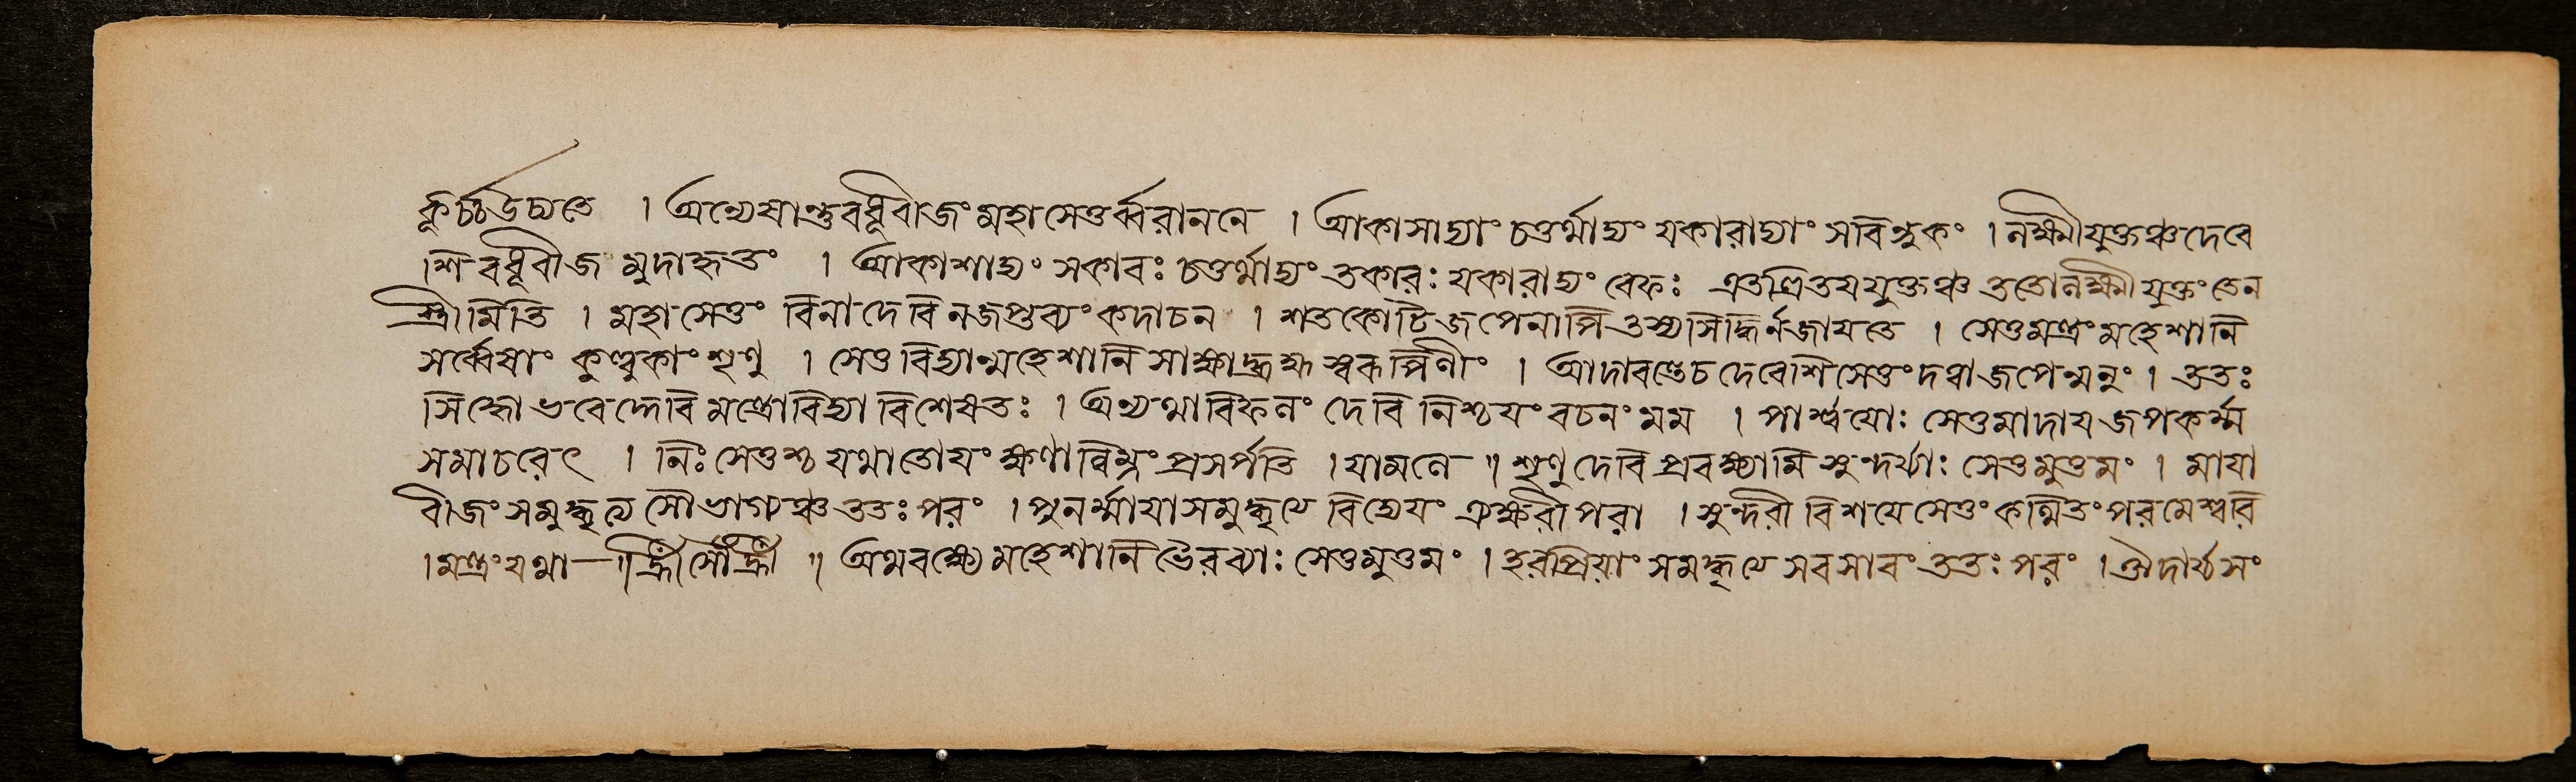 কূর্চ্চউচ্যতে । অন্যেষান্তুবধূবীজং মহাসেতুর্ব্বরাননে । আকাসাদ্যাং চতুর্থাদ্যং যকারাদ্যাং সবিন্দুকং । লক্ষ্মীযুক্তঞ্চদেবে
শিবধূবীজ মুদাহৃতং । আকাশাদ্যং সকারঃ চতুর্থাদ্যং তকারঃ যকারাদ্যং রেফঃ এতত্ত্রিতযযুক্তঞ্চ ততোলক্ষ্মী যুক্তং তেন
স্ত্রীমিতি । মহাসেতুং বিনাদেবি নজপ্তব্যং কদাচন । শতকোটি জপেনাপি তস্যসিদ্ধির্নজাযতে । সেতুমন্ত্রং মহেশানি
সর্ব্বেষাং কুল্লুকাং শৃণু । সেতুবিদ্যান্মহেশানি সাক্ষাদ্ব্রহ্ম স্বরূপিণীং । আদাবন্তেচ দেবেশি সেতুং দত্বা জপেন্মনুং । ততঃ
সিদ্ধোভবেদ্দেবি মন্ত্রোবিদ্যা বিশেষতঃ । অন্যথাবিফলং দেবি নিশ্চযং বচনং মম । পার্শ্বযোঃ সেতুমাদায জপকর্ম্ম
সমাচরেৎ । নিঃসেতুশ্চ যথাতোযং ক্ষণান্নিম্নং প্রসর্পতি । যামলে ॥ শৃণুদেবি প্রবক্ষ্যামি সুন্দর্য্যাঃ সেতুমুত্তমং । মাযা
বীজং সমুদ্ধৃত্য সৌভাগ্যঞ্চ ততঃ পরং । পুনর্ম্মাযা সমুদ্ধৃত্যে বিদ্যেযং ত্র্যক্ষরীপরা । সুন্দরী বিশযে সেতুং কল্পিতং পরমেশ্বরি
। মন্ত্রং যথা— ॥ হ্রীঁ সৌঁ হ্রীঁ ॥ অথবক্ষ্যে মহেশানি ভৈরব্যাঃ সেতুমুত্তমং । হরপ্রিযাং সমদ্ধৃত্যে সবসাবং ততঃ পরং । ঔদার্য্যসং